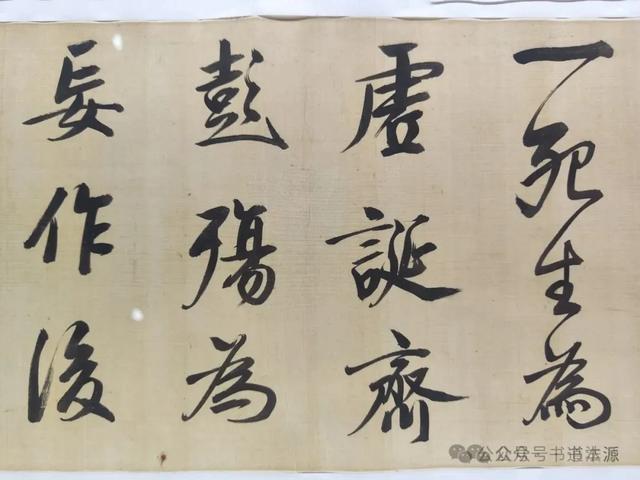 一死生為
虛誕齊
彭殤為
妄作後
公众号书道本源